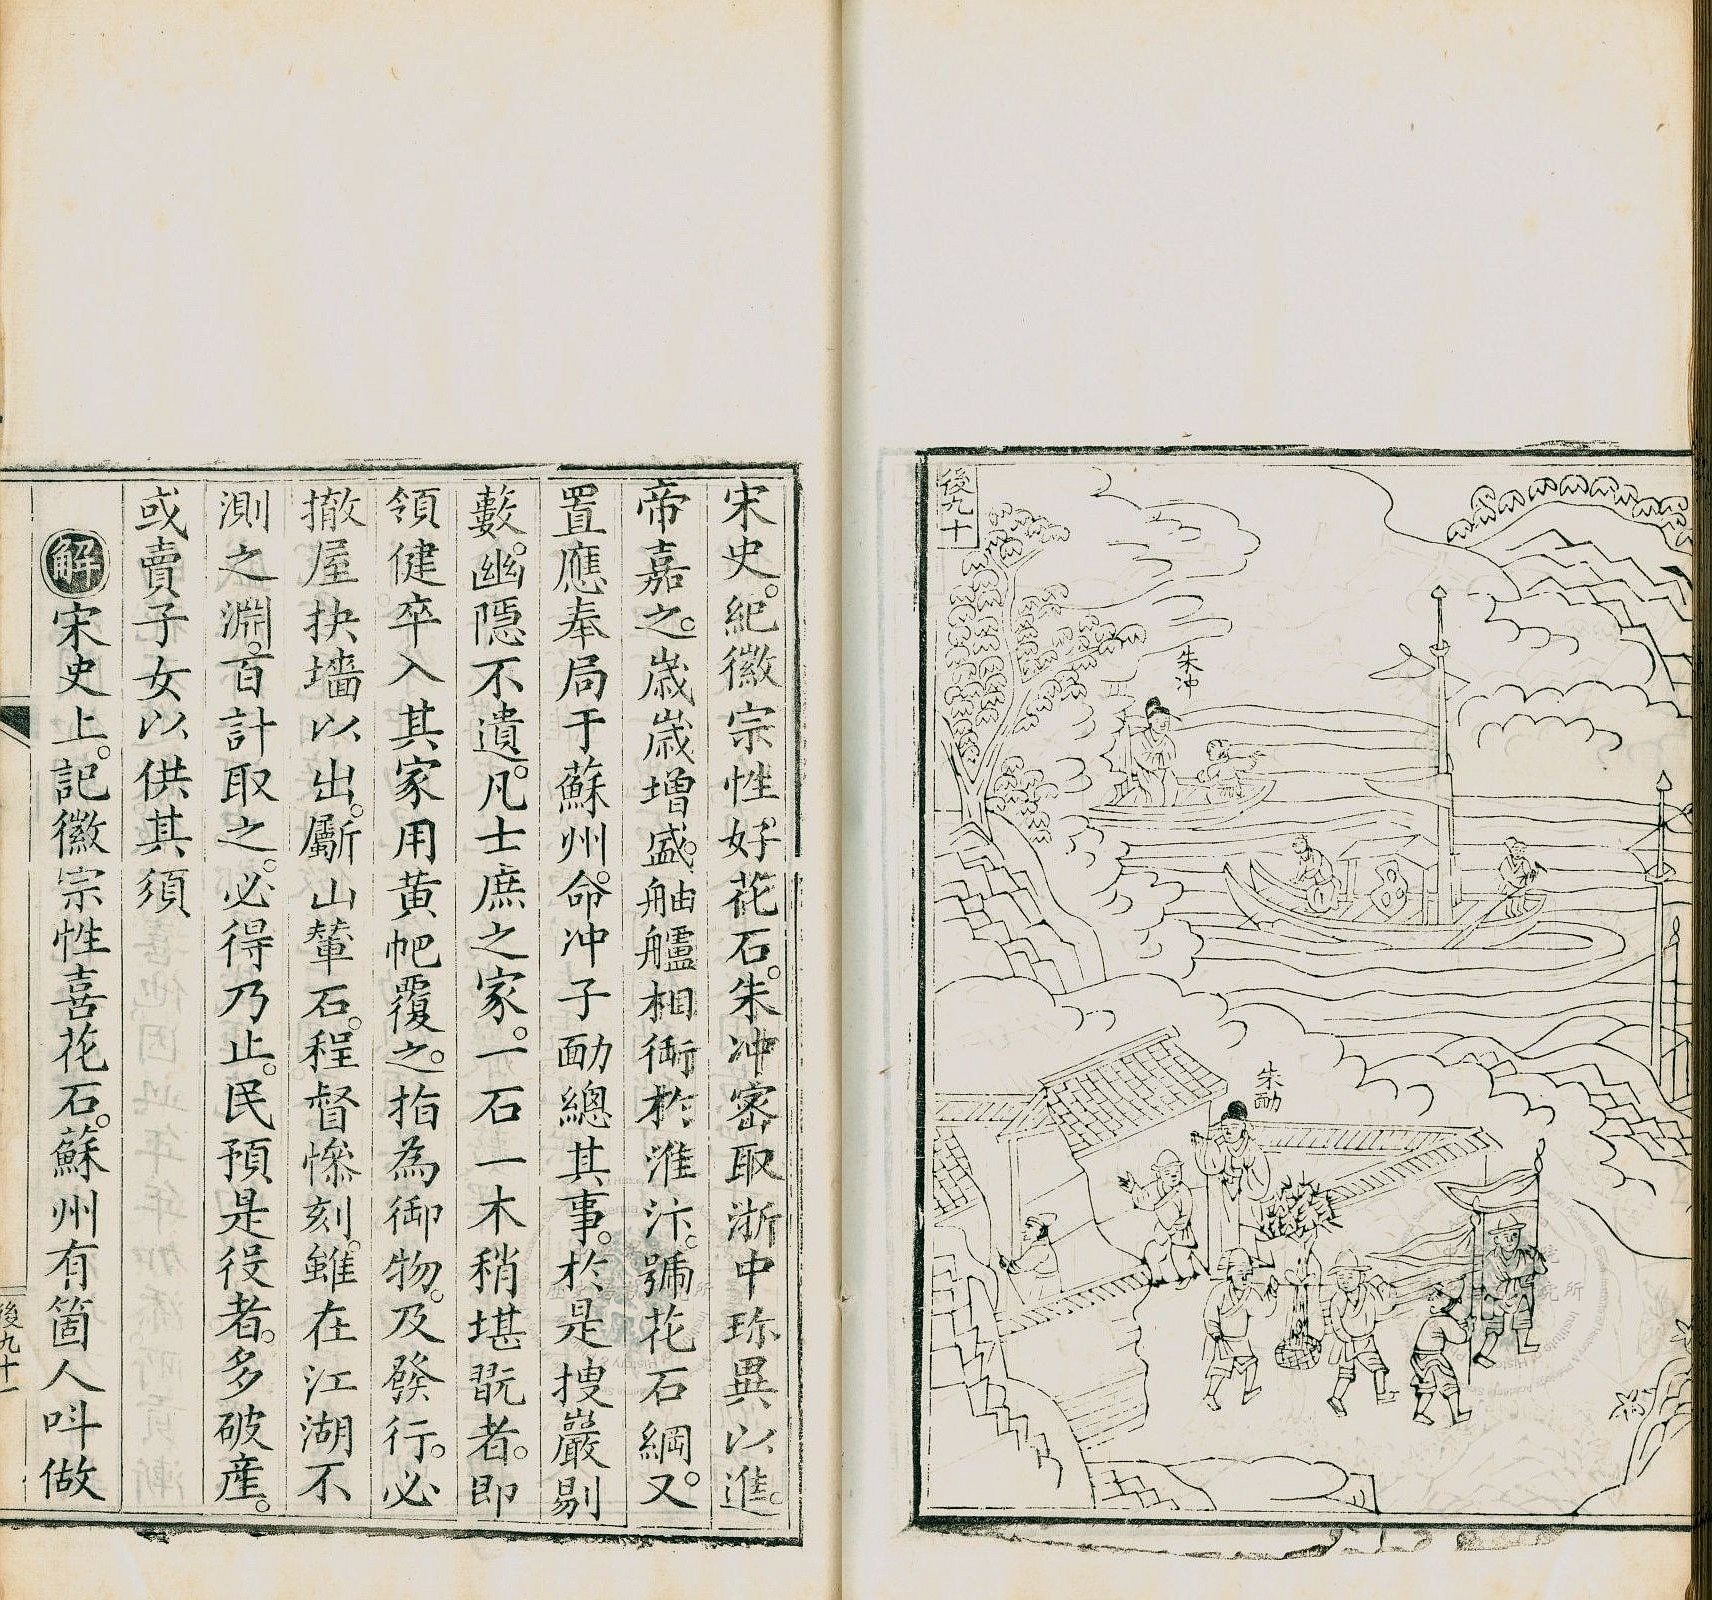 後九十
朱沖
朱勔
宋史。紀徽宗性。好花石。朱冲密取浙中珎異以進。
帝嘉之。歳歳增盛。舳艫相銜於淮汴。號花石綱。又
置應奉局于蘇州。命冲子勔總其事。於是搜巖剔
藪。幽隠不遺。凡士庶之家。一石一木稍堪翫者。即
領健卒入其家用黄帊覆之。指為御物。及發行。必
撤屋抉墻以出。斸山輦石。程督慘刻。雖在江湖不
測之淵。百計取之。必得乃止。民預是役者。多破産。
或賣子女以供其須
解宋史上。記徽宗性喜花石。蘇州有箇人呌做
後九十一